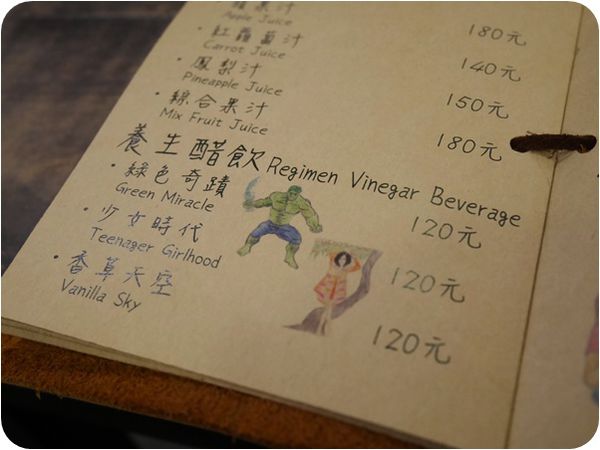 蘋果汁 180元
Apple Juice
·紅蘿蔔汁 140元
Carrot Juice
·鳳梨汁 150元
Pineapple Juice
·綜合果汁 180元
Mix Fruit Juice
養生醋飲 Regimen Vinegar Beverage
·綠色奇蹟 120元
Green Miracle
·少女時代 120元
Teenager Girlhood
·香草天空 120元
Vanilla Sky